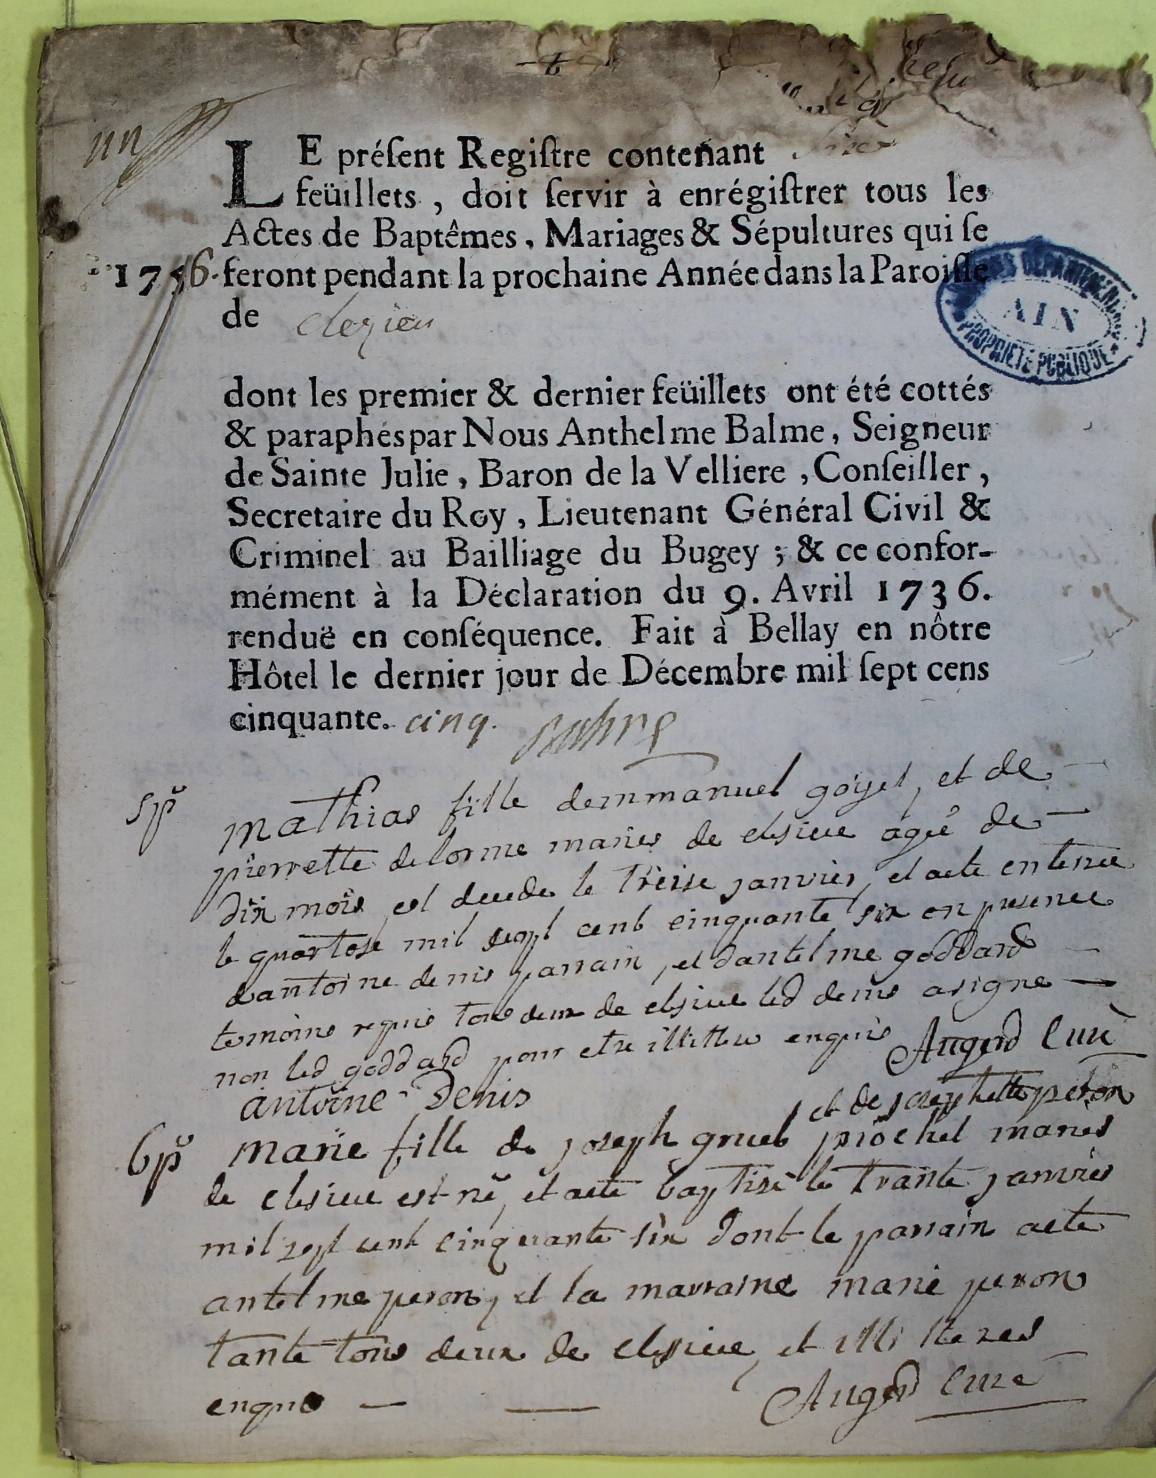 un
LE préſent Regiſtre contenant
feüillets, doit ſervir à enrégiſtrer tous les
Actes de Baptêmes, Mariages & Sépultures qui ſe
1756. feront pendant la prochaine Année dans la Paroiſſe
de
ARCHIVES DÉPARTEMENTALES
AIN
PROPRIÉTÉ PUBLIQUE
dont les premier & dernier feüillets ont été cottés
& paraphés par Nous Anthelme Balme, Seigneur
de Sainte Julie, Baron de la Velliere, Conſeiller,
Secretaire du Roy, Lieutenant Général Civil &
Criminel au Bailliage du Bugey; & ce confor-
mément à la Déclaration du 9. Avril 1736.
renduë en conſéquence. Fait à Bellay en nôtre
Hôtel le dernier jour de Décembre mil ſept cens
cinquante. cinq. Balme
Sp mathias fille demmanuel goÿet, et de
pierrette delorme maries de elsieue agée de
dix mois est decede le treise janvier, et aete enterree
le quartose mil sept cent cinquante six en presence
dantoine denis parrain, et dantelme goddard
temoins requis tous deux de elsieue led denis a signe
non led goddard pour etre illitteré enquis Augerd Curé
antoine Denis
et de josephette peron
Bp marie fille de joseph gruel piochet maries
de elsieue est né, et aete baptisé le trante janvier
mil sept cent cinquante six dont le parrain aete
antelme peron, et la marraine marie peron
tante tous deux de elsieue, et illiteres
enquis Augerd Curé